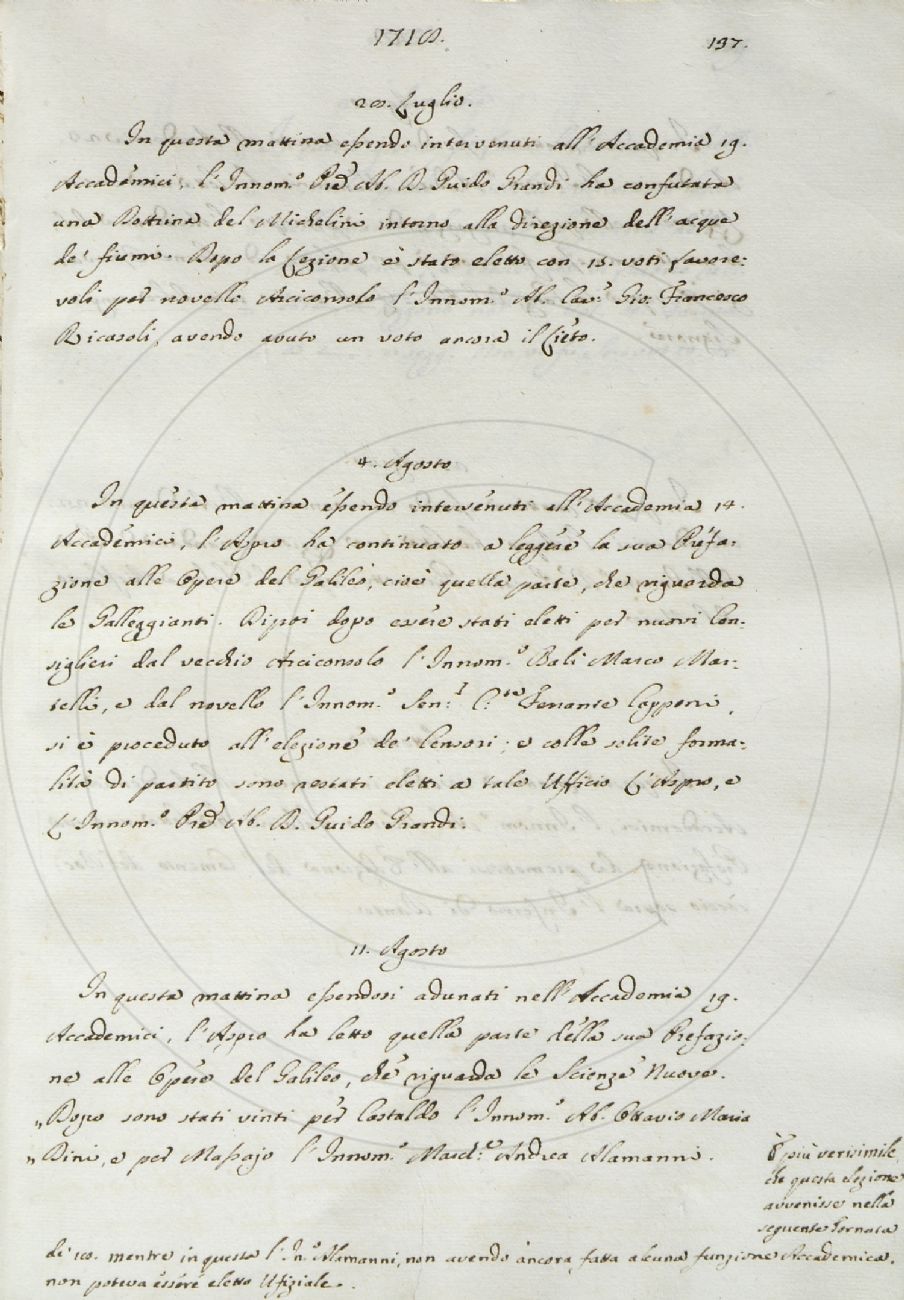 1718.
137.
28. Luglio.
In questa mattina essendo intervenuti all'Accademia 19.
Accademici, l'Innom.º Pre Ab. D. Guido Grandi ha confutata
una Dottrina del Michelini intorno alla direzione dell'acque
de' fiumi. Dopo la Lezione è stato eletto con 15. voti favore:
voli per novello Arciconsolo l'Innom.º Ab. Cav.e Gio: Francesco
Ricasoli, avendo avuto un voto ancora il Lièto.
4. Agosto
In questa mattina essendo intervenuti all'Accademia 14.
Accademici, l'Aspro ha continuato a leggere la sua Prefa:
zione alle Opere del Galileo, cioè quella parte, che riguarda
le Galleggianti. Dipoi dopo essere stati eletti per nuovi Con:
siglieri dal vecchio Arciconsolo l'Innom.º Balì Marco Mar:
telli, e dal novello l'Innom.º Sen:r C:te Ferrante Capponi,
si è proceduto all'elezione de' Censori; e colle solite forma:
lità di partito sono restati eletti a tale Ufficio L'Aspro, e
L'Innom.º Pre Ab. D. Guido Grandi.
11. Agosto
In questa mattina essendosi adunati nell'Accademia 19.
Accademici, l'Aspro ha letto quella parte della sua Prefazio:
ne alle Opere del Galileo, che riguarda le Scienze Nuove.
„ Dopo sono stati vinti per Castaldo l'Innom.º Ab. Ottavio Maria
„ Dini, e per Massajo l'Innom.º March:e Andrea Alamanni.
È più verisimile,
che questa elezione
avvenisse nella
seguente Tornata
de' 18. mentre in questa l'In.º Alamanni, non avendo ancora fatta alcuna funzione Accademica,
non poteva essere eletto Ufiziale.